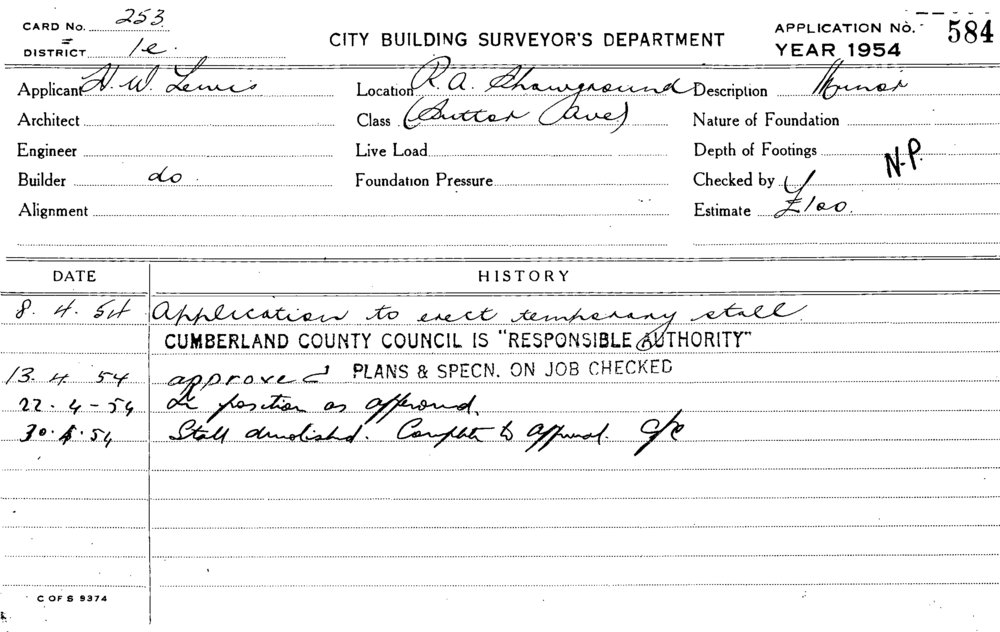 CARD No. 253
DISTRICT 1e.
CITY BUILDING SURVEYOR'S DEPARTMENT
APPLICATION No. 584
YEAR 1954
Applicant H. W. Lewis Location R. A. Showground Description Minor
Architect Class (Suttor Ave) Nature of Foundation
Engineer Live Load Depth of Footings N.P.
Builder do. Foundation Pressure Checked by
Alignment Estimate £100.
DATE HISTORY
8. 4. 54 Application to erect temporary stall.
CUMBERLAND COUNTY COUNCIL IS "RESPONSIBLE AUTHORITY"
13. 4. 54 approved PLANS & SPECN. ON JOB CHECKED
22. 4 - 54 In position as approved.
30. 54 Stall demolished. Complete to approval. C/C
C OF S 9374